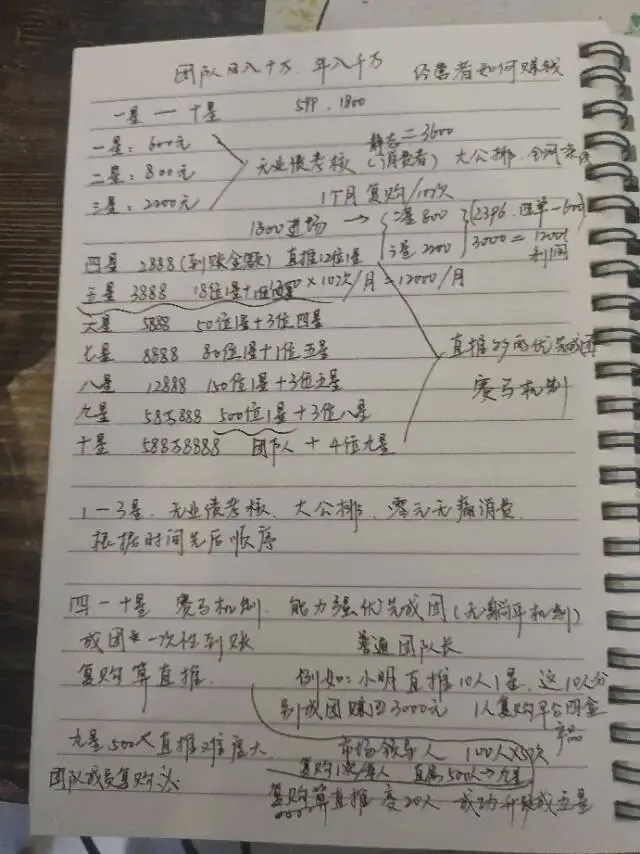 团队日入十万 年入千万 经营者如何赚钱
一星 — 十星 599, 1800
一星: 600元
二星: 800元
三星: 2200元
静态=3600
无业绩考核 (消费者) 大公排, 全网
1个月复购/10次
1800进场 → 二星 800 (2396.
三星 2200 3000 =
四星 2888 (到账金额) 直推12位1星
五星 3888 18位1星+1位四星 ×10次/月 = 12000/月
六星 5888 50位1星+3位四星
七星 8888 80位1星+1位五星
八星 12888 150位1星+3位五星
九星 58万888 500位1星+3位八星
十星 588万8888 团队人 + 4位九星
直推 优先成团
赛马机制
1—3星, 无业绩考核, 大公排, 零元无痛消费,
根据时间先后顺序
四—十星 赛马机制, 能力强优先成团 (无躺平机制)
成团 一次性到账 普通团队长
复购算直推. 例如: 小明直推10人1星, 这10人分
别成团赚回3000元 1人复购平台四盒
产品
九星500人直推难度大 市场领导人 100人×5次
团队成员复购 复购1次/每人 直属500人→九星
复购算直推 变20人 成功升级成五星